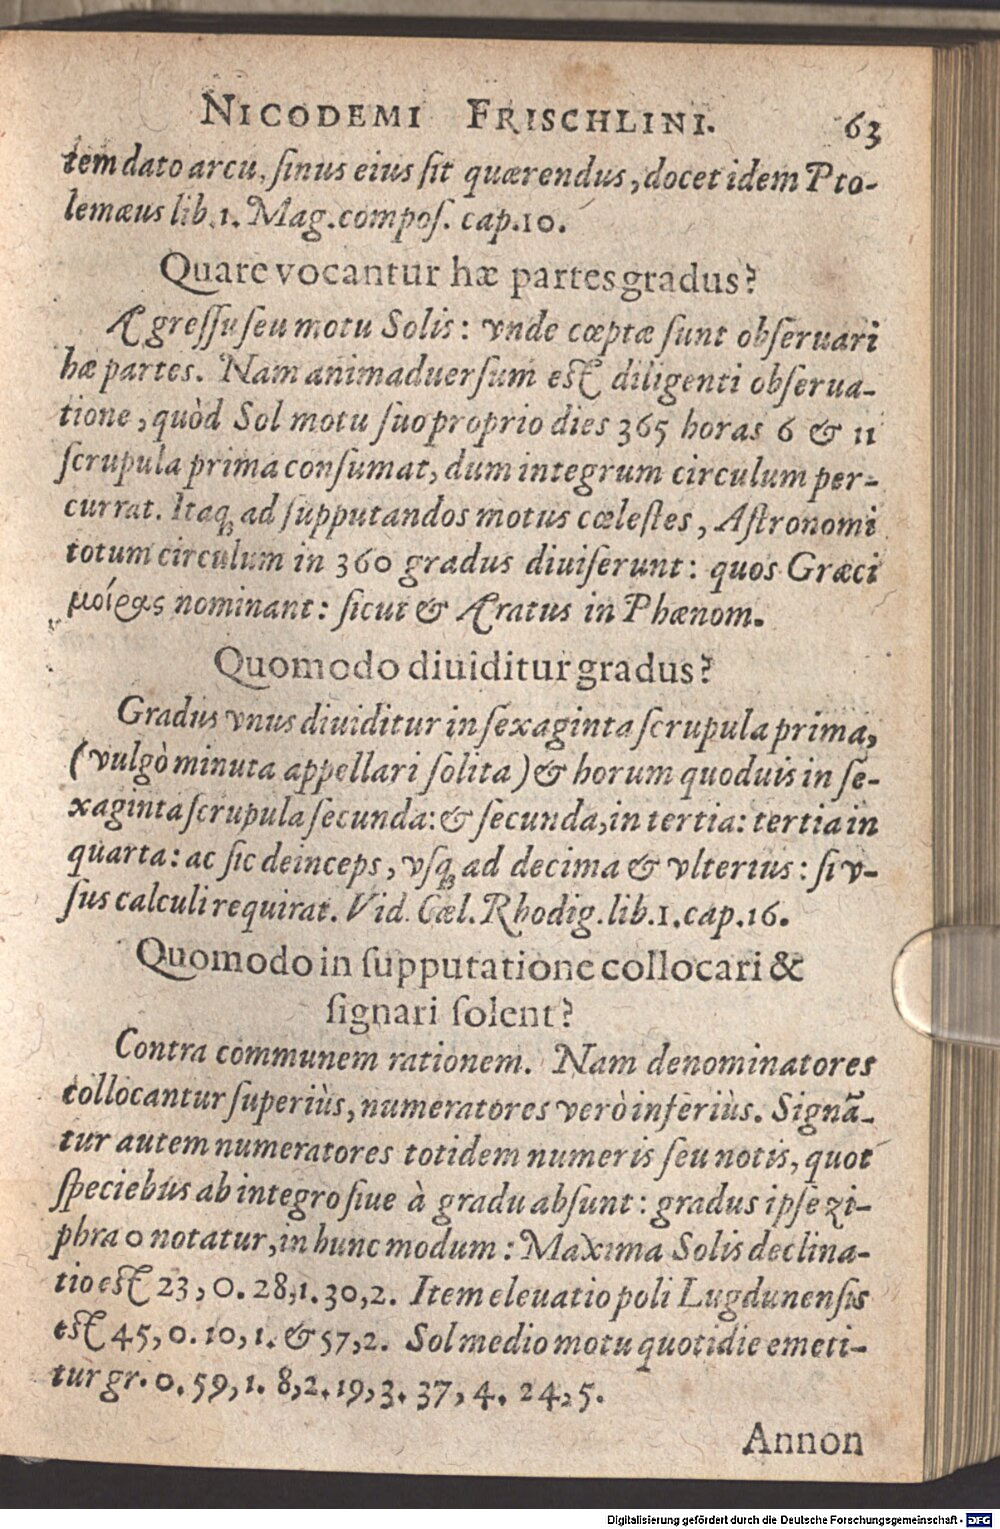 NICODEMI FRISCHLINI. 63
tem dato arcu, ſinus eius ſit quærendus, docet idem Pto-
lemæus lib.1. Mag.compoſ. cap.10.
Quare vocantur hæ partes gradus?
A greſſu ſeu motu Solis: vnde cœptæ ſunt obſeruari
hæ partes. Nam animaduerſum eſt diligenti obſerua-
tione, quòd Sol motu ſuo proprio dies 365 horas 6 & 11
ſcrupula prima conſumat, dum integrum circulum per-
currat. Itaq; ad ſupputandos motus cœleſtes, Aſtronomi
totum circulum in 360 gradus diuiſerunt: quos Græci
μοίρας nominant: ſicut & Aratus in Phænom.
Quomodo diuiditur gradus?
Gradus vnus diuiditur in ſexaginta ſcrupula prima,
(vulgò minuta appellari ſolita) & horum quoduis in ſe-
xaginta ſcrupula ſecunda: & ſecunda, in tertia: tertia in
quarta: ac ſic deinceps, vſq; ad decima & vlterius: ſi v-
ſus calculi requirat. Vid. Cæl. Rhodig. lib.1.cap.16.
Quomodo in ſupputatione collocari &
ſignari ſolent?
Contra communem rationem. Nam denominatores
collocantur ſuperiùs, numeratores verò inferiùs. Signã-
tur autem numeratores totidem numeris ſeu notis, quot
ſpeciebus ab integro ſiue à gradu abſunt: gradus ipſe zi-
phra 0 notatur, in hunc modum: Maxima Solis declina-
tio eſt 23, 0. 28,1. 30,2. Item eleuatio poli Lugdunenſis
eſt 45, 0. 10, 1. & 57,2. Sol medio motu quotidie emeti-
tur gr. 0. 59, 1. 8,2. 19,3. 37, 4. 24,5.
Annon
Digitalisierung gefördert durch die Deutsche Forschungsgemeinschaft - DFG